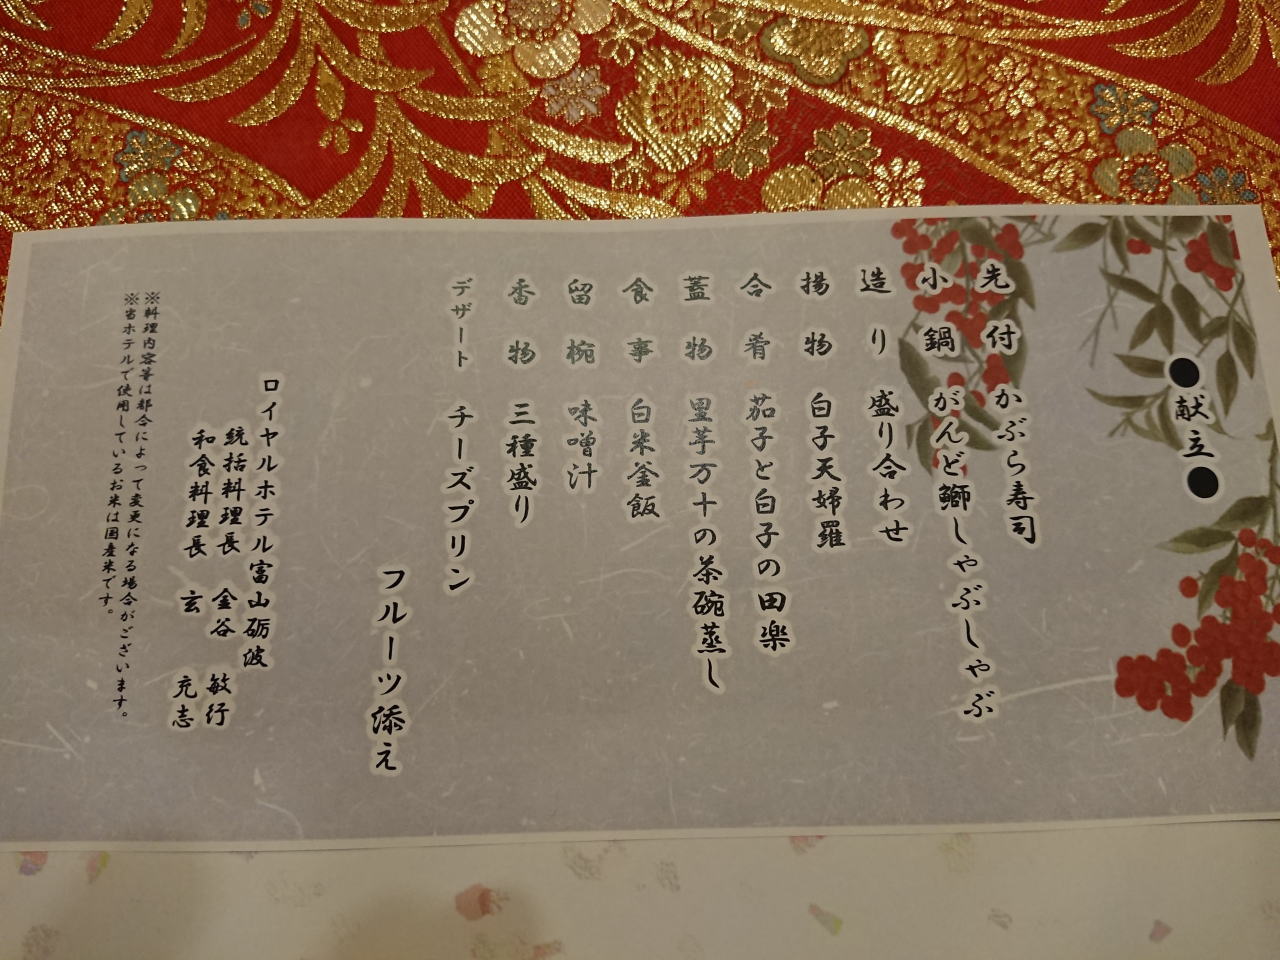 ●献立●
先付 かぶら寿司
小鍋 がんど鰤しゃぶしゃぶ
造り 盛り合わせ
揚物 白子天婦羅
合肴 茄子と白子の田楽
蓋物 里芋万十の茶碗蒸し
食事 白米釜飯
留椀 味噌汁
香物 三種盛り
デザート チーズプリン
フルーツ添え
ロイヤルホテル富山砺波
統括料理長 金谷 敏行
和食料理長 玄 充志
※料理内容等は都合によって変更になる場合がございます。
※当ホテルで使用しているお米は国産米です。